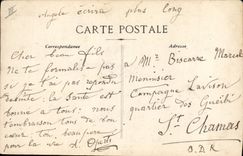 Angele écrira plus long
CARTE POSTALE
Correspondance
Adresse
Cher beau fils
Ne te formalise pas
si je t'ai pas repondu
de suite. la santé est
bonne a tous. nous
t'embrassons tous de bon
cœur ton beau pere
pour la vie
a Mr Biscarre Marcel
Menuisier
Campagne Lavison
quartier des
St Chamas
B.D.R